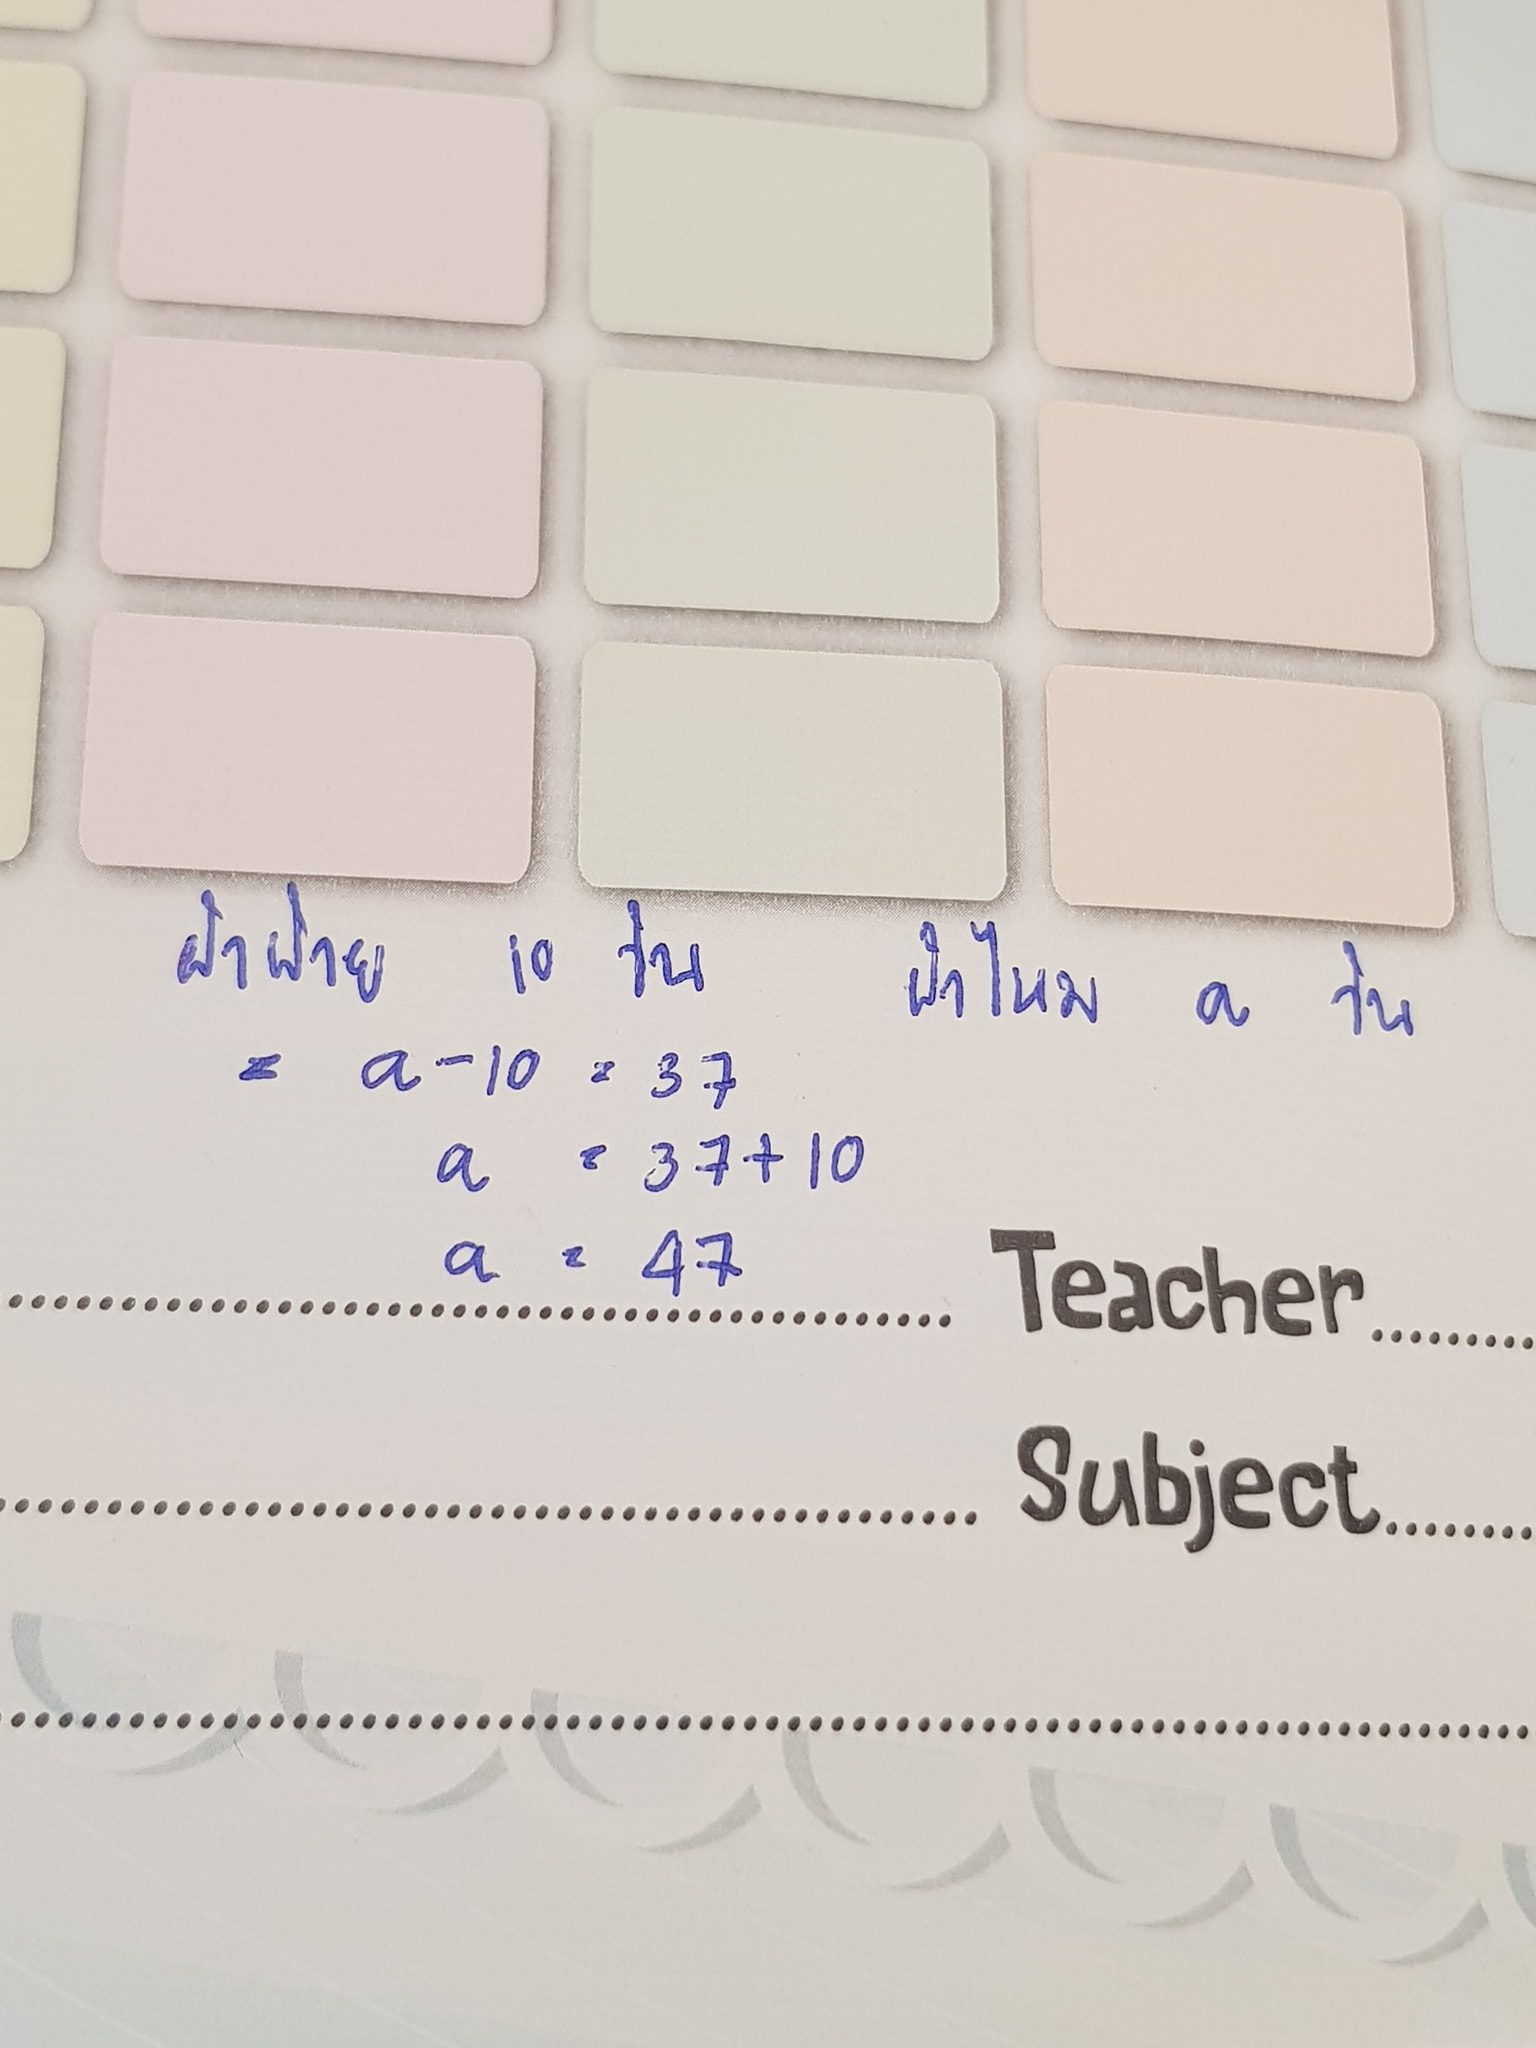 ผ้าฝ้าย 10 ชิ้น ผ้าไหม a ชิ้น
= a - 10 = 37
a = 37 + 10
a = 47
Teacher
Subject